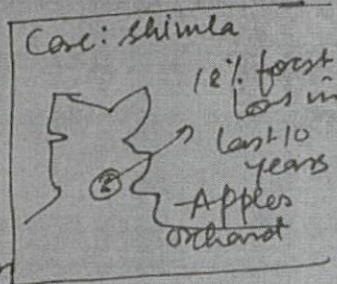 Case: Shimla
18% forst
Loss in
last 10
years
Apples
orchard